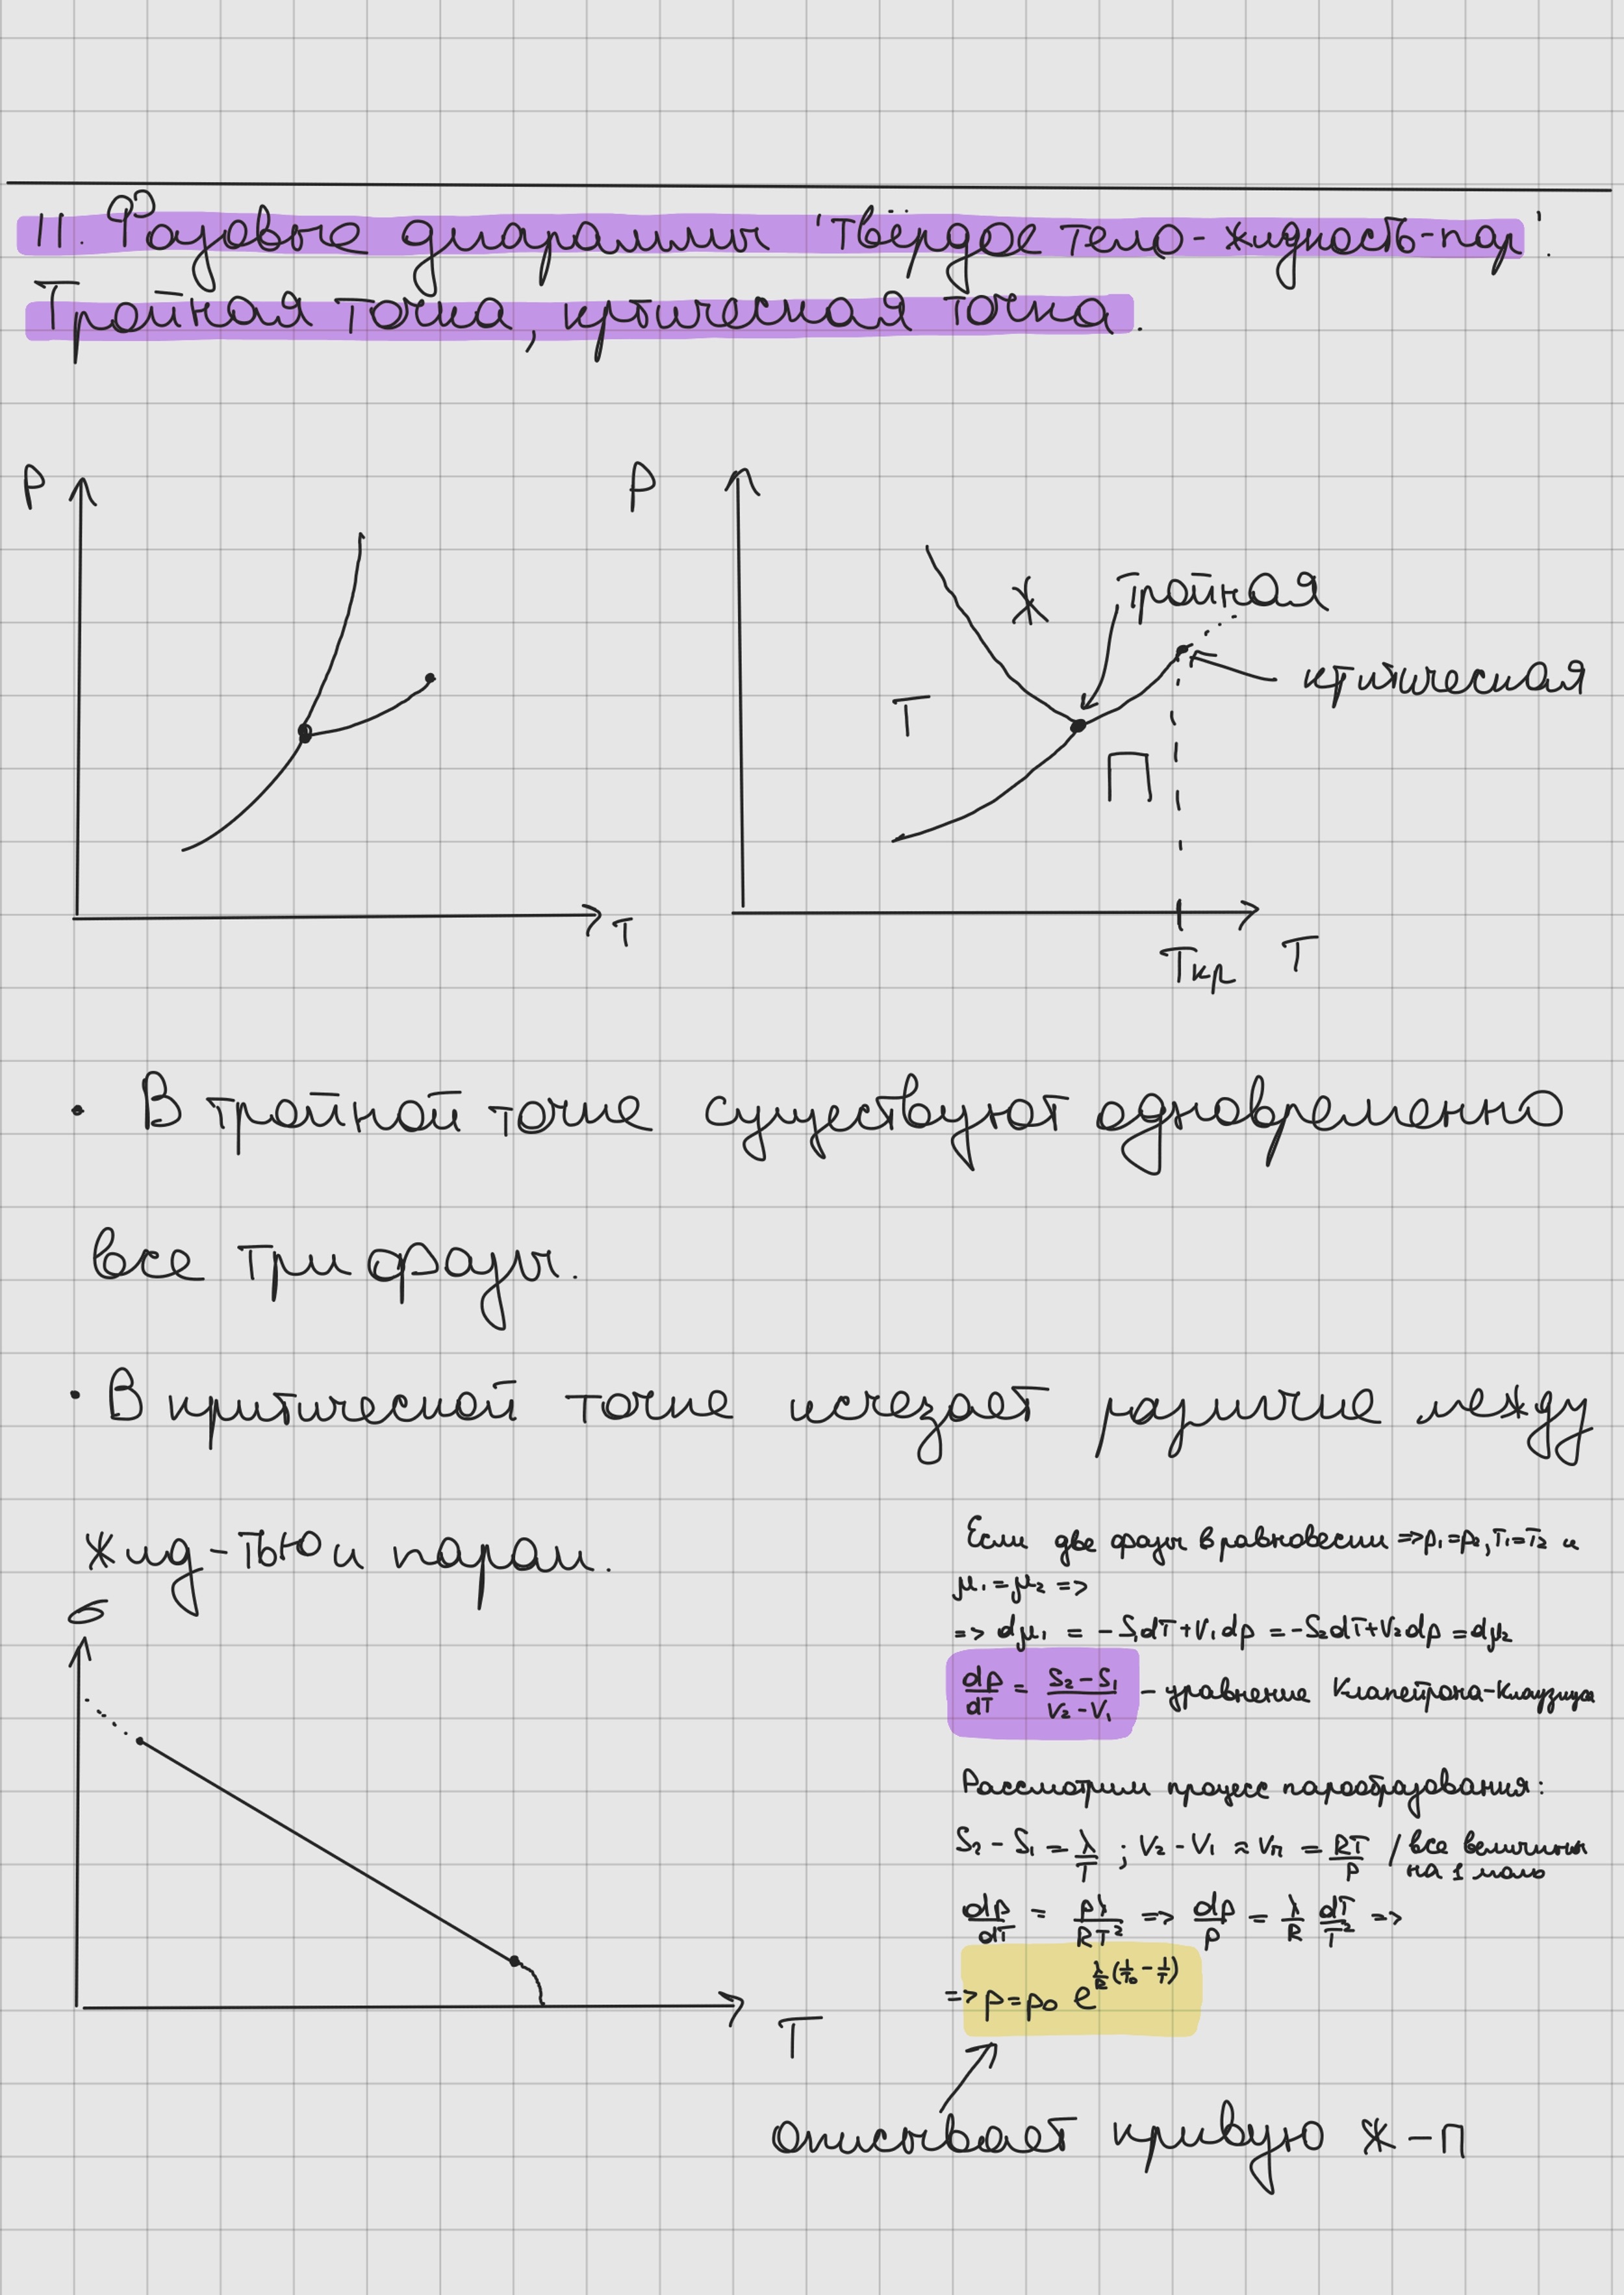 11. Фазовые диаграммы "твёрдое тело-жидкость-пар".
Тройная точка, критическая точка.
P
T
P
Ж
тройная
критическая
Т
П
Tкр
T
• В тройной точке существуют одновременно
все три фазы.
• В критической точке исчезает различие между
жид-тью и паром.
σ
T
Если две фазы в равновесии => p₁=p₂, T₁=T₂ и
μ₁=μ₂ =>
=> dμ₁ = -S₁dT+V₁dp = -S₂dT+V₂dp = dμ₂
dp/dT = (S₂-S₁)/(V₂-V₁) - уравнение Клапейрона-Клаузиуса
Рассмотрим процесс парообразования:
S₂-S₁ = λ/T ; V₂-V₁ ≈ Vп = RT/p / все величины
на 1 моль
dp/dT = pλ/RT² => dp/p = λ/R dT/T² =>
=> p=p₀ e^(λ/R(1/T₀ - 1/T))
описывает кривую ж-п